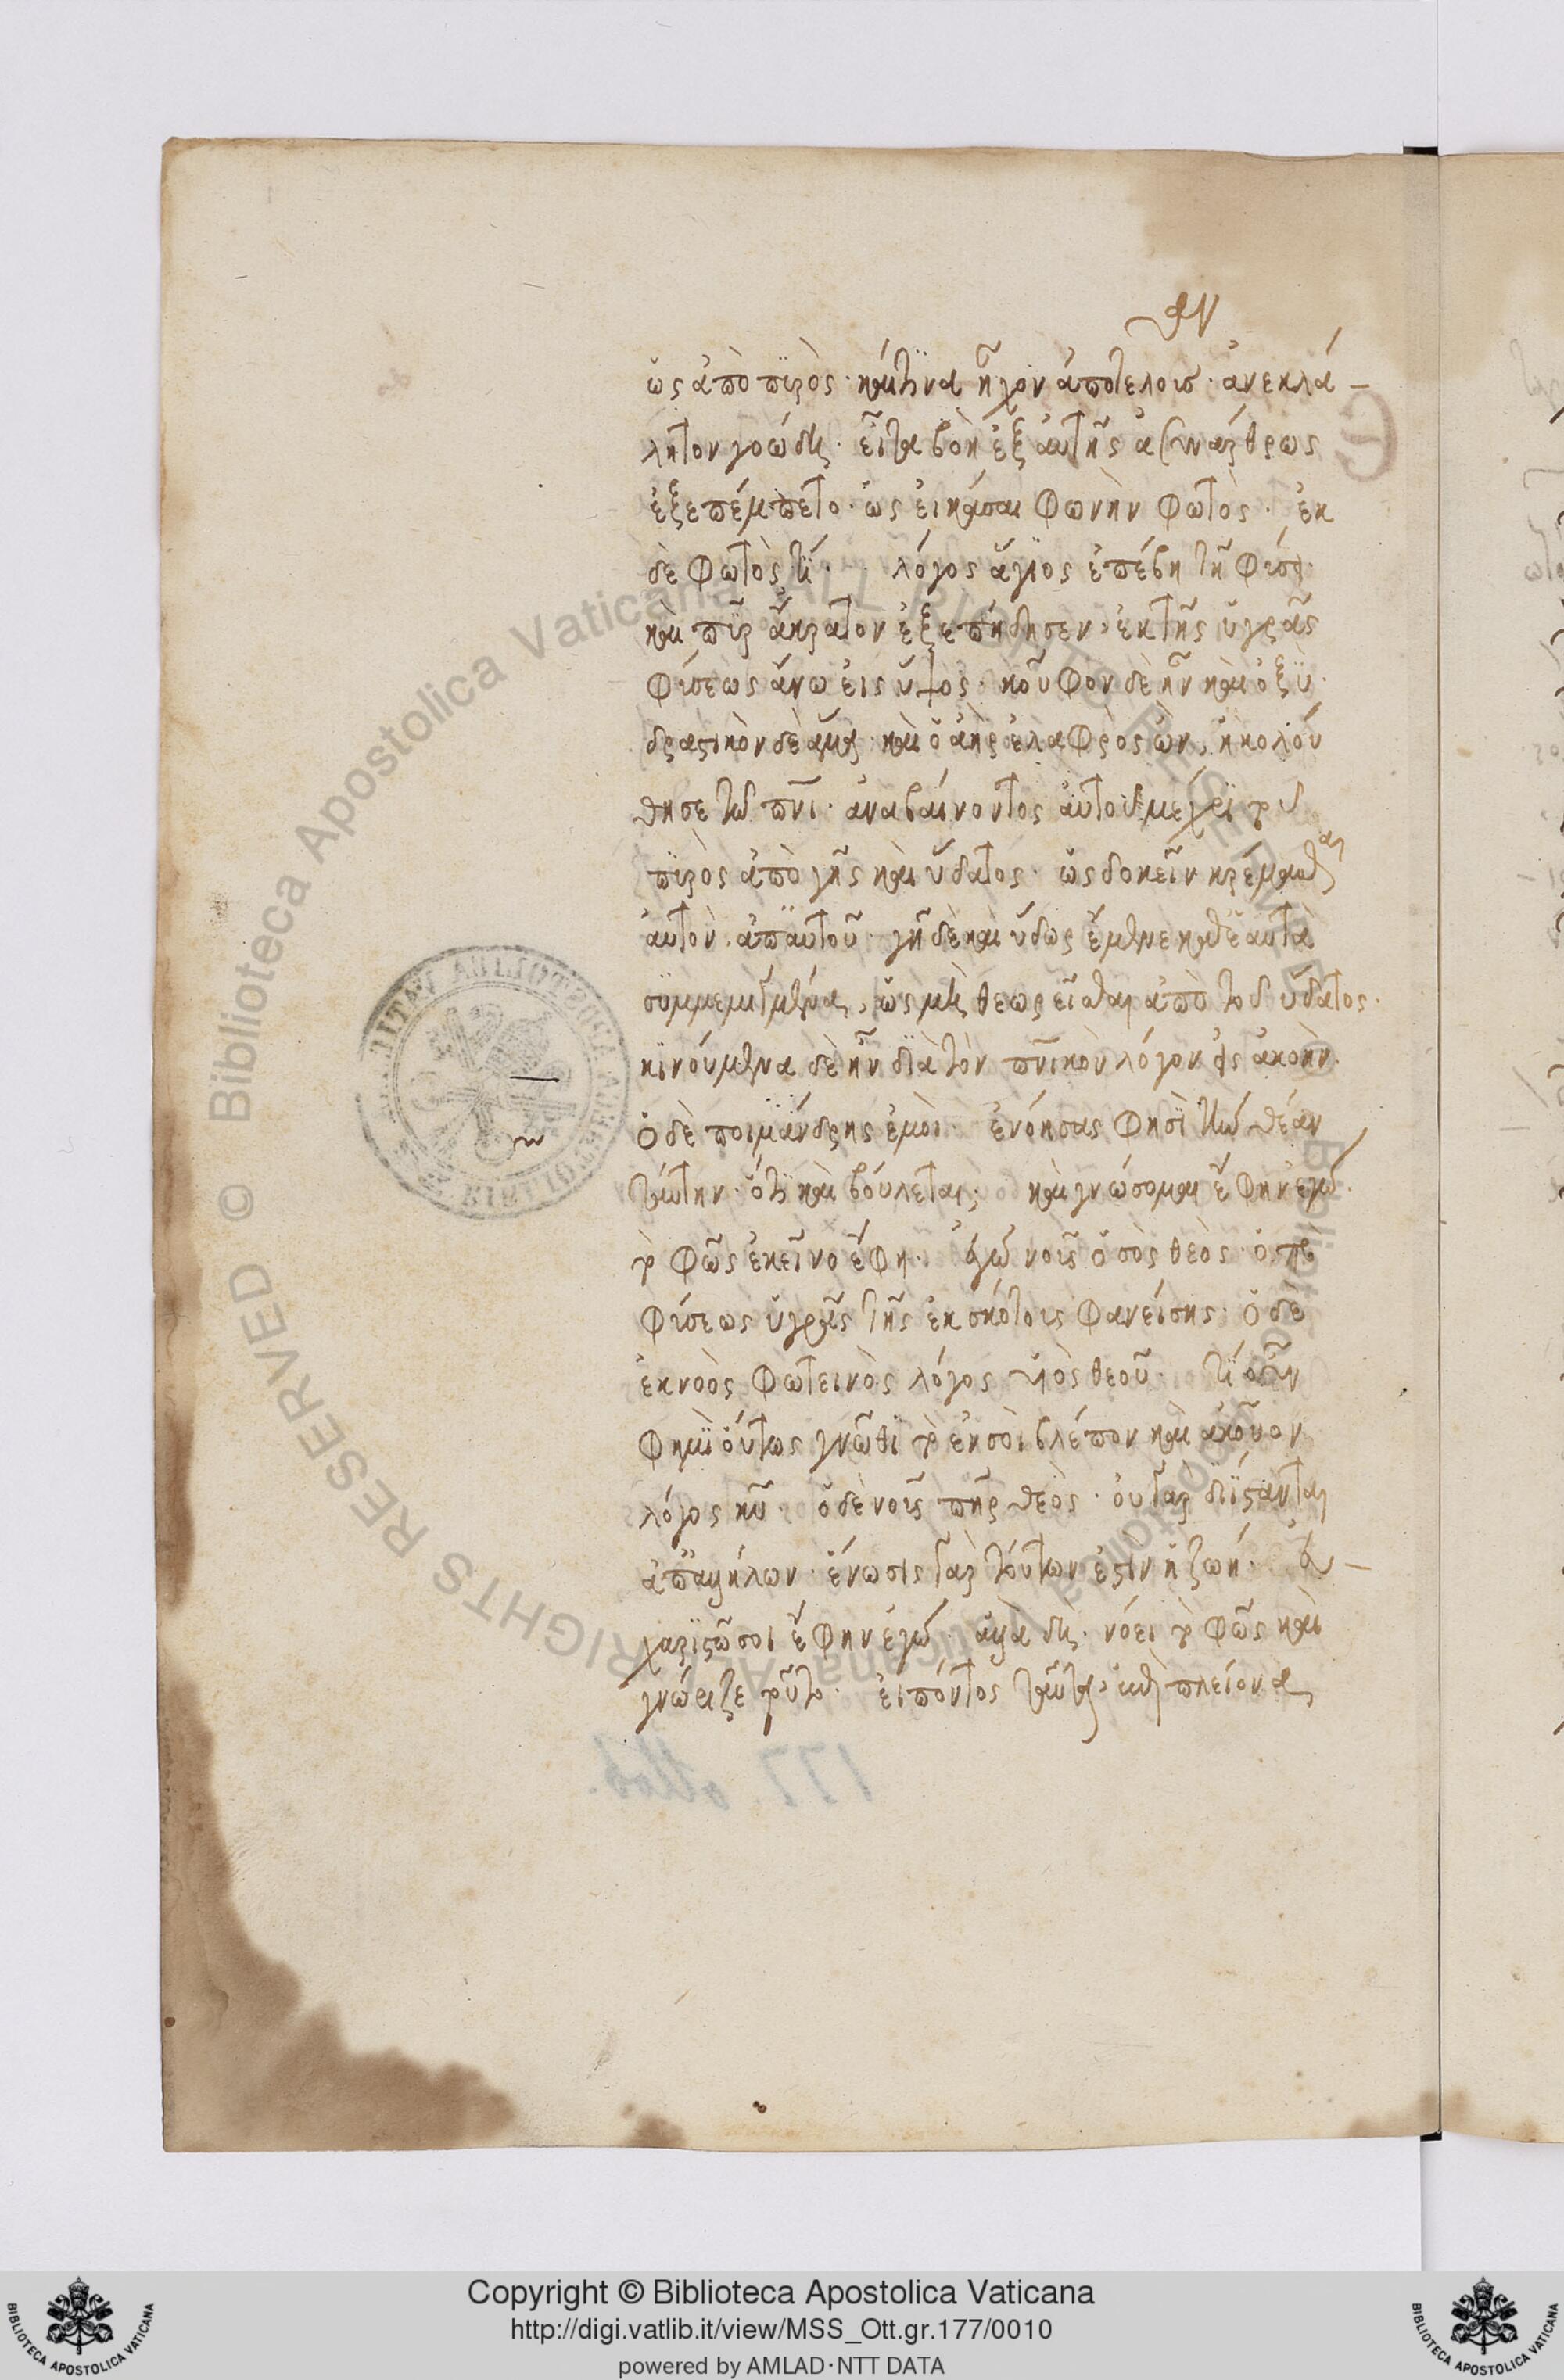 ὡς ἀπὸ πυρὸς· καί τινα ἦχον ἀποτελοῦσ· ἀνεκλά-
λητον γοώδη· εἶτα βοὴ ἐξ αὐτῆς ἀσυνάρθρως
ἐξεπέμπετο· ὡς εἰκάσαι φωνὴν φωτὸς· ἐκ
δὲ φωτὸς τί· λόγος ἅγιος ἐπέβη τῆ φύσει·
καὶ πῦρ ἄκρατον ἐξεπήδησεν, ἐκ τῆς ὑγρᾶς
φύσεως ἄνω εἰς ὕψος· κοῦφον δὲ ἦν καὶ ὀξὺ·
δραστικὸν δὲ ἅμα· καὶ ὁ ἀὴρ ἐλαφρὸς ὢν, ἠκολού
θησε τῶ πνι· ἀναβαίνοντος αὐτοῦ μέχρι τοῦ
πυρὸς ἀπὸ γῆς καὶ ὕδατος· ὡς δοκεῖν κρέμασθαι
αὐτὸν ἀπ' αὐτοῦ· γῆ δὲ καὶ ὕδωρ ἔμενε καθ' ἑαυτὰ
συμμεμιγμένα, ὡς μὴ θεωρεῖσθαι ἀπὸ τοῦ ὕδατος·
κινούμενα δὲ ἦν διὰ τὸν πνικὸν λόγον εἰς ἀκοήν·
ὁ δὲ ποιμάνδρης ἐμοὶ· ἐνόησας φησὶ τὴν θέαν
ταύτην· ὅ τι καὶ βούλεται; καὶ γνώσομαι ἔφην ἐγώ·
τὸ φῶς ἐκεῖνο ἔφη· ἐγὼ νοῦς ὁ σὸς θεὸς· ὁ πρὸ
φύσεως ὑγρᾶς τῆς ἐκ σκότους φανείσης· ὁ δὲ
ἐκ νοὸς φωτεινὸς λόγος υἱὸς θεοῦ· τί οὖν
φημὶ οὕτως γνῶθι τὸ ἐν σοὶ βλέπον καὶ ἀκοῦον
λόγος κυ ὁ δὲ νοῦς πηρ θεὸς· οὐ γὰρ διίστανται
ἀπ' ἀλλήλων· ἕνωσις γὰρ τούτων ἐστὶν ἡ ζωή· εὐ-
χαριστῶ σοι ἔφην ἐγώ· ἀλλὰ δὴ· νόει τὸ φῶς καὶ
γνώριζε τοῦτο· εἰπόντος ταῦτα, ἐπὶ πλείονα
177 ottob.
Copyright © Biblioteca Apostolica Vaticana
http://digi.vatlib.it/view/MSS_Ott.gr.177/0010
powered by AMLAD·NTT DATA